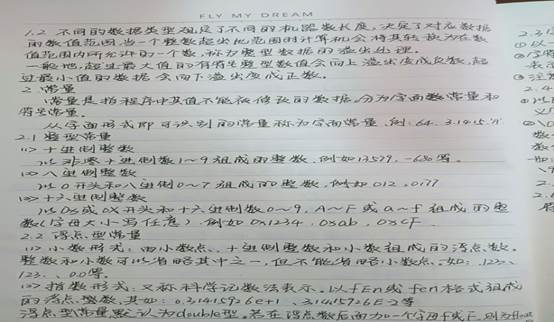 FLY MY DREAM
1.2 不同的数据类型规定了不同的机器数长度,决定了对应数据
的数值范围,当一个整数超出此范围时计算机会将其转换为在数
值范围内所允许的一个数,称为整型数据的溢出处理。
一般地,超过最大值的有符号整型数值会向上溢出变成负数,超
过最小值的数据会向下溢出变成正数。
2 常量
常量是指程序中其值不能被修改的数据,分为字面数常量和
符号常量。
从字面形式即可识别的常量称为字面常量,例:64、3.1415、'A'
2.1 整型常量
(1) 十进制整数
以非零十进制数1~9组成的整数,例如13579、-680等。
(2) 八进制整数
以0开头和八进制0~7组成的整数,例如012、0177
(3) 十六进制整数
以0x或0X开头和十六进制数0~9、A~F或a~f组成的整
数(字母大小写任意),例如0x1234、0xab、0xCF
2.2 浮点型常量
(1) 小数形式:由小数点、十进制整数和小数组成的浮点数。
整数和小数可以省略其中之一,但不能省略小数点,如:.123、
123.、0.0等。
(2) 指数形式:又称科学记数法表示,以fEn或fen格式组成
的浮点整数,其如:0.31415926e+1、.31415926E-2等
浮点型常量默认为double型。若在浮点数后面加一个字母f或F,则为float
2.3
① 以
表示
③ 注
2.4
① 以
义
② \0